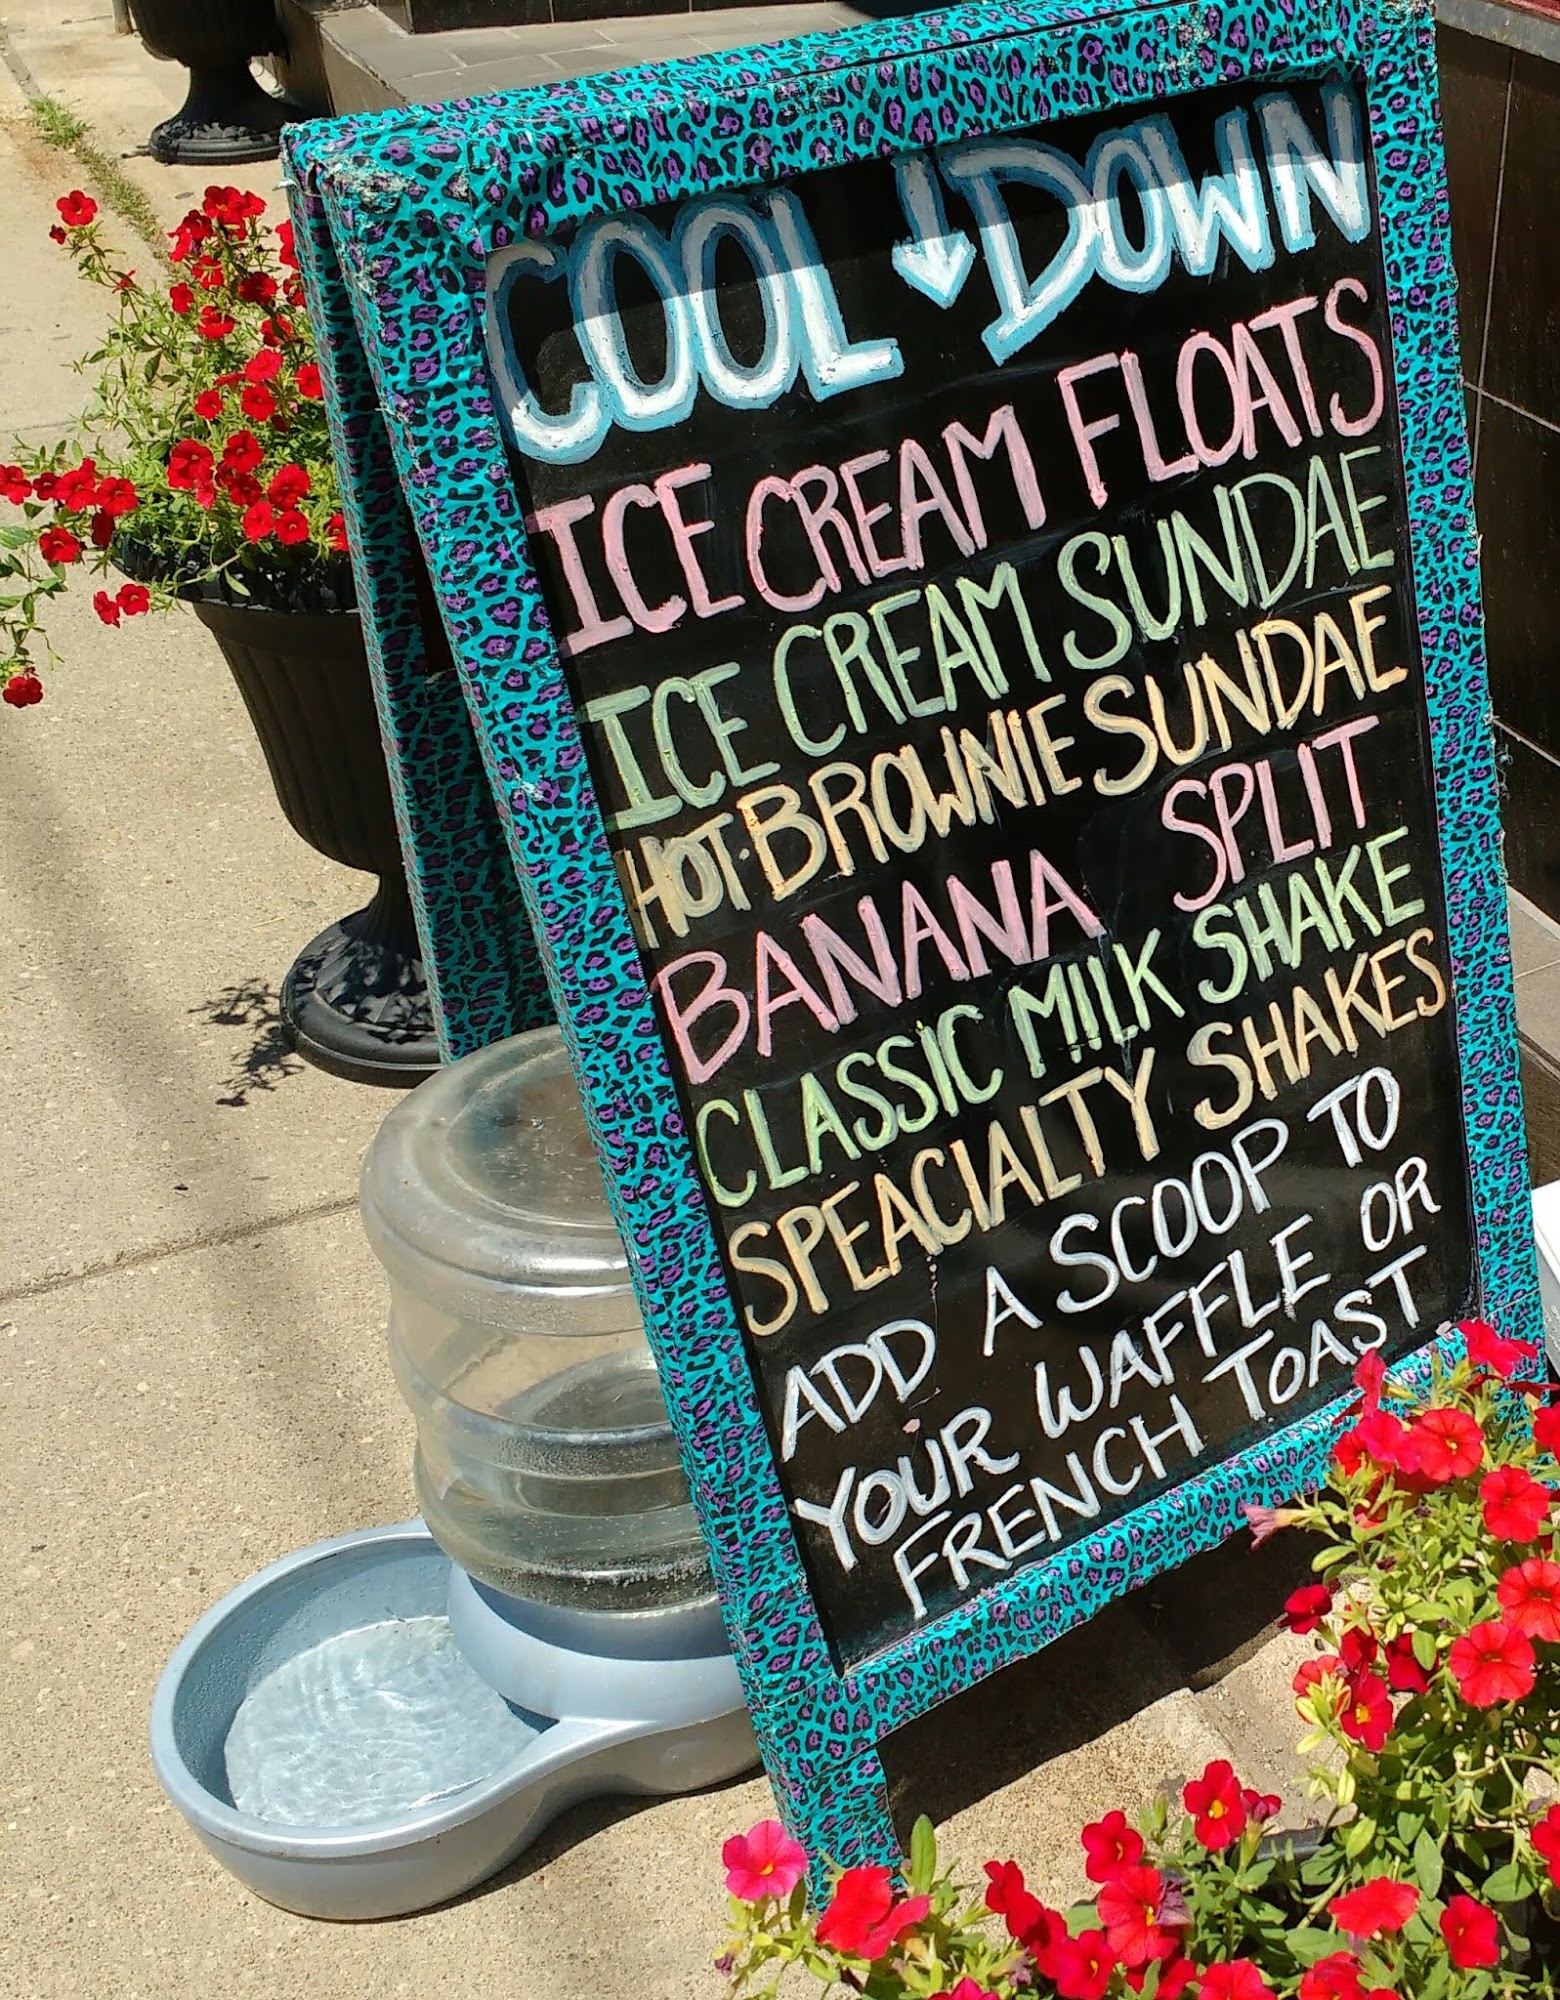 COOL ↓ DOWN
ICE CREAM FLOATS
ICE CREAM SUNDAE
HOT BROWNIE SUNDAE
BANANA SPLIT
CLASSIC MILK SHAKE
SPEACIALTY SHAKES
ADD A SCOOP TO
YOUR WAFFLE OR
FRENCH TOAST